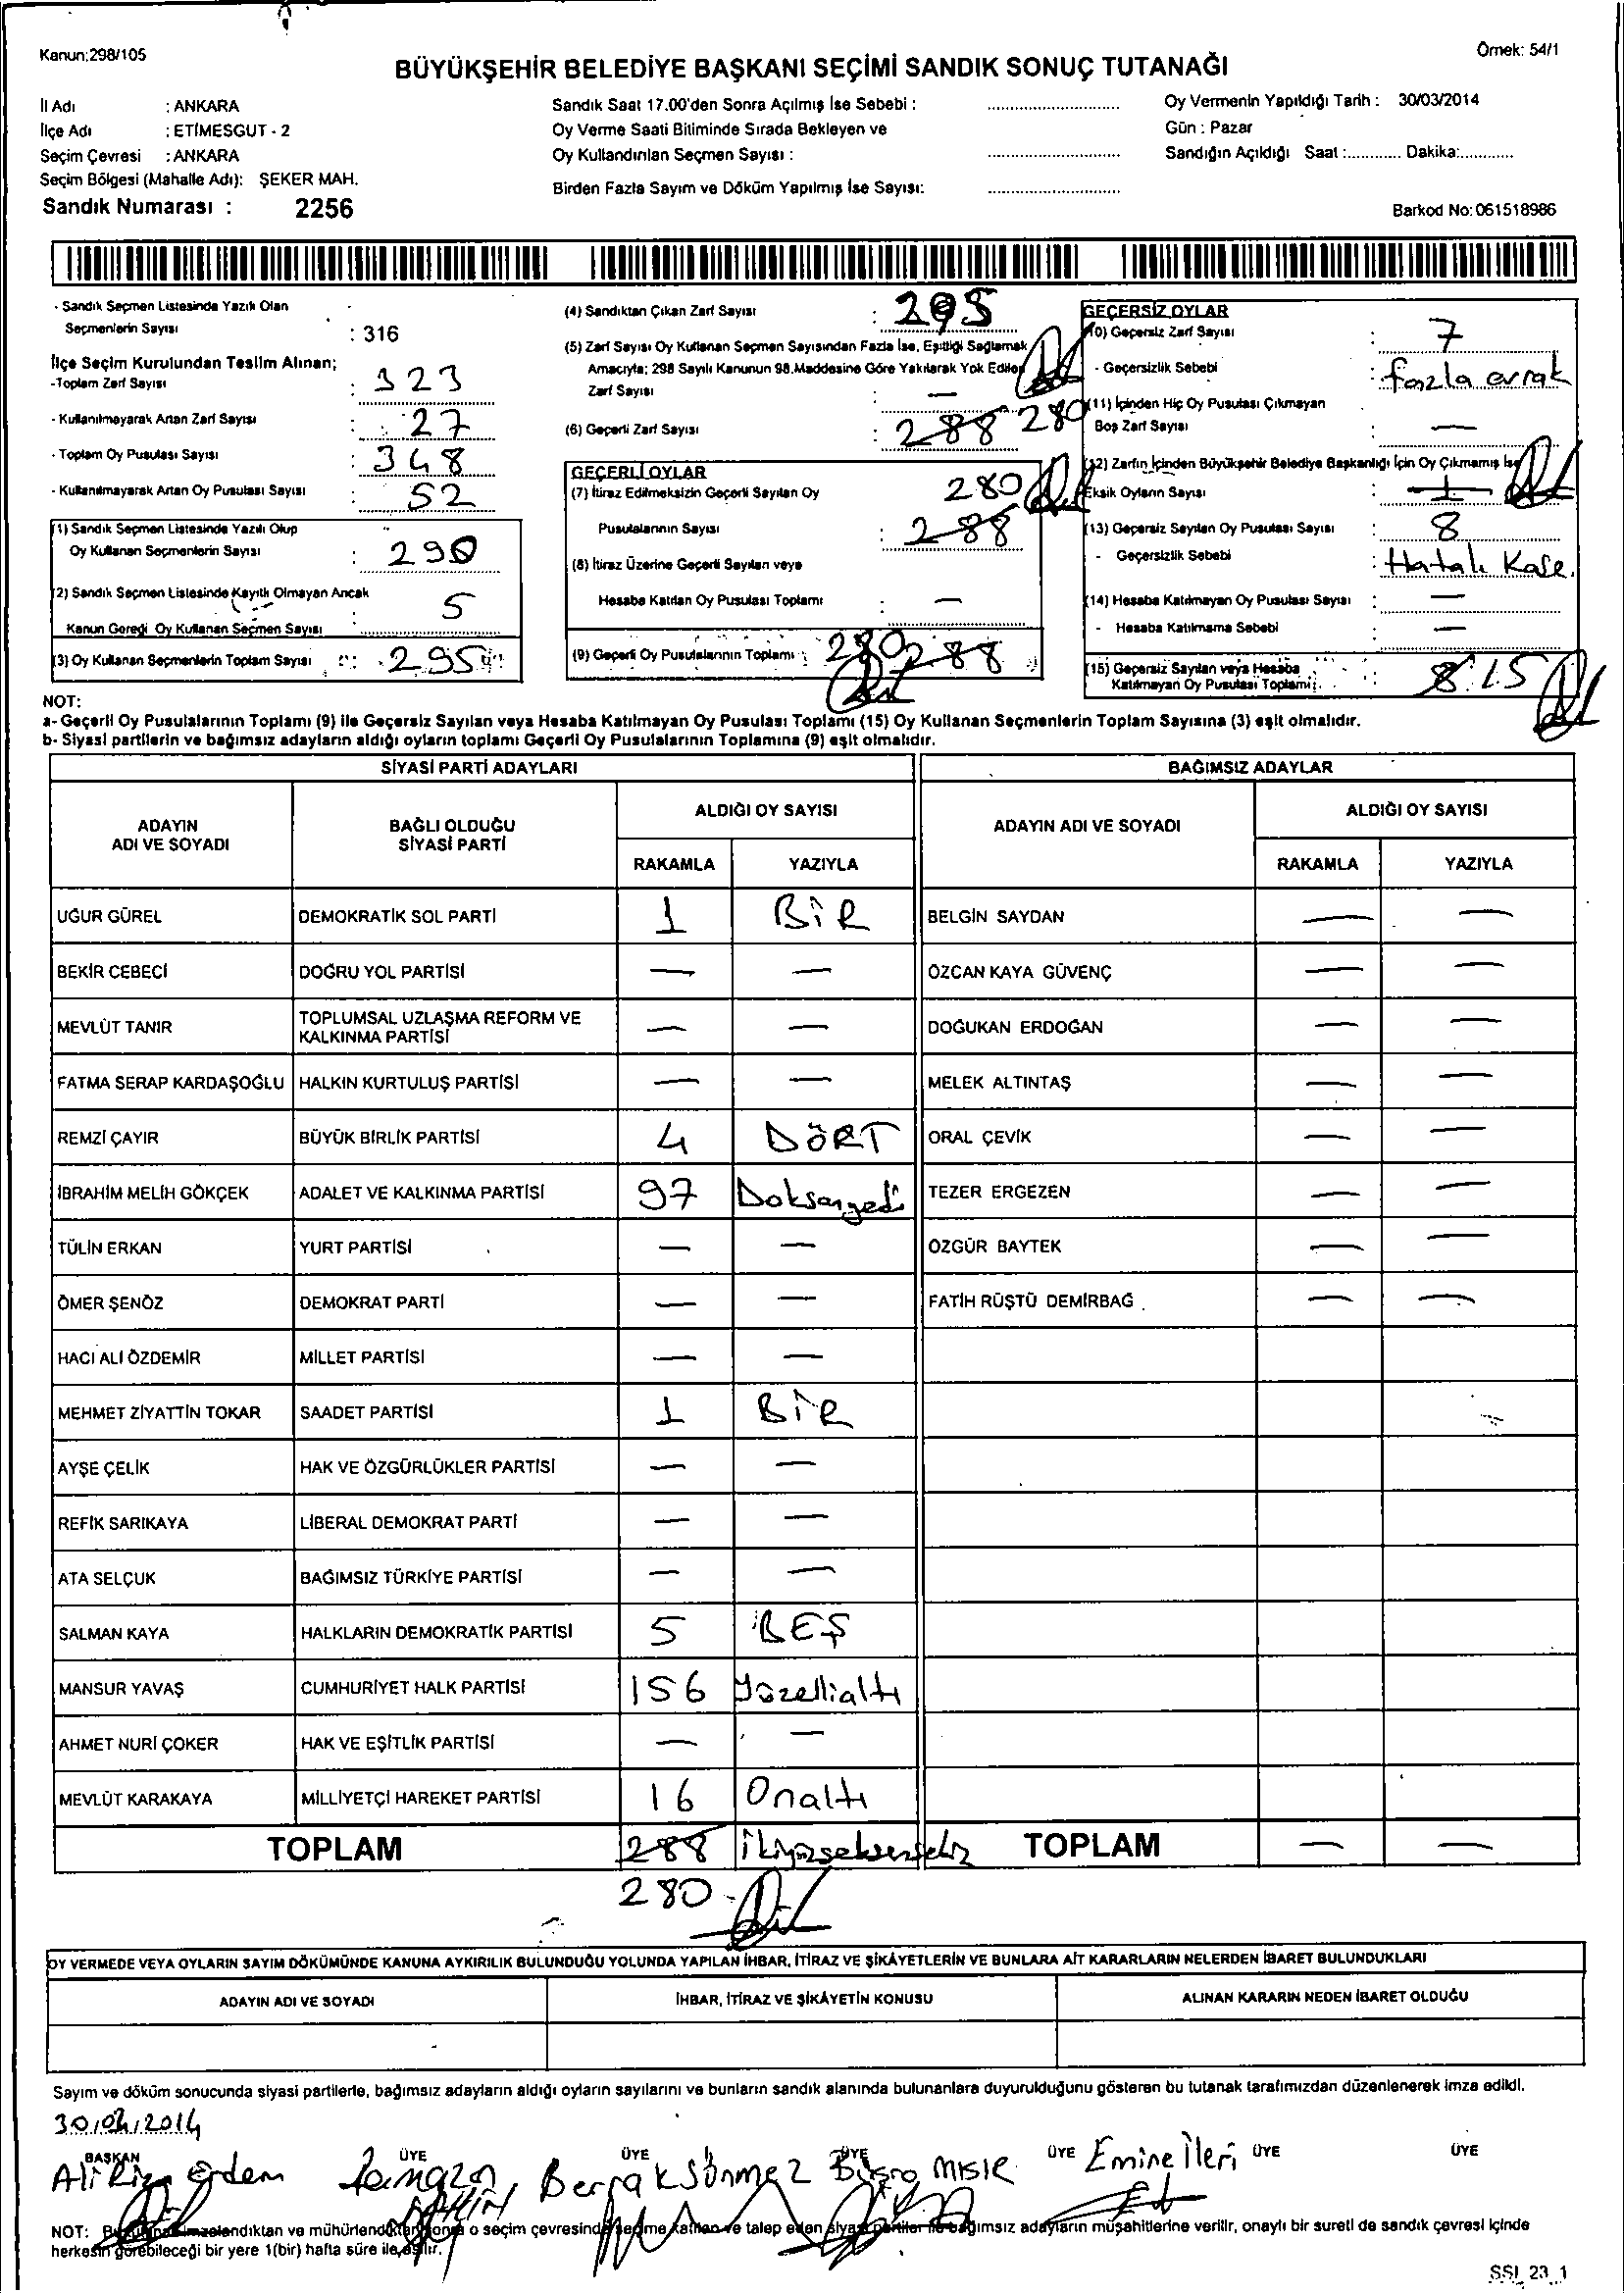 Kanun:298/105
Örnek: 54/1
BÜYÜKŞEHİR BELEDİYE BAŞKANI SEÇİMİ SANDIK SONUÇ TUTANAĞI
İl Adı : ANKARA
İlçe Adı : ETİMESGUT - 2
Seçim Çevresi : ANKARA
Seçim Bölgesi (Mahalle Adı): ŞEKER MAH.
Sandık Numarası : 2256
Sandık Saat 17.00'den Sonra Açılmış İse Sebebi :
Oy Verme Saati Bitiminde Sırada Bekleyen ve
Oy Kullandırılan Seçmen Sayısı :
Birden Fazla Sayım ve Döküm Yapılmış İse Sayısı:
Oy Vermenin Yapıldığı Tarih : 30/03/2014
Gün : Pazar
Sandığın Açıldığı Saat :............ Dakika:............
Barkod No: 061518986
- Sandık Seçmen Listesinde Yazılı Olan
Seçmenlerin Sayısı : 316
İlçe Seçim Kurulundan Teslim Alınan;
-Toplam Zarf Sayısı : 323
- Kullanılmayarak Artan Zarf Sayısı : 27
- Toplam Oy Pusulası Sayısı : 348
- Kullanılmayarak Artan Oy Pusulası Sayısı : 52
(1) Sandık Seçmen Listesinde Yazılı Olup
Oy Kullanan Seçmenlerin Sayısı : 290
(2) Sandık Seçmen Listesinde Kayıtlı Olmayan Ancak
Kanun Gereği Oy Kullanan Seçmen Sayısı : 5
(3) Oy Kullanan Seçmenlerin Toplam Sayısı : 295
(4) Sandıktan Çıkan Zarf Sayısı : 295
(5) Zarf Sayısı Oy Kullanan Seçmen Sayısından Fazla İse, Eşitliği Sağlamak
Amacıyla; 298 Sayılı Kanunun 98.Maddesine Göre Yakılarak Yok Edilen
Zarf Sayısı : —
(6) Geçerli Zarf Sayısı : 288 280
GEÇERLİ OYLAR
(7) İtiraz Edilmeksizin Geçerli Sayılan Oy 280
Pusulalarının Sayısı : 288
(8) İtiraz Üzerine Geçerli Sayılan veya
Hesaba Katılan Oy Pusulası Toplamı : —
(9) Geçerli Oy Pusulalarının Toplamı : 280 288
GEÇERSİZ OYLAR
(10) Geçersiz Zarf Sayısı : 7
- Geçersizlik Sebebi : fazla evrak
(11) İçinden Hiç Oy Pusulası Çıkmayan
Boş Zarf Sayısı : —
(12) Zarfın İçinden Büyükşehir Belediye Başkanlığı İçin Oy Çıkmamış İse
Eksik Oyların Sayısı : 1
(13) Geçersiz Sayılan Oy Pusulası Sayısı : 8
- Geçersizlik Sebebi : Hatalı Kaşe.
(14) Hesaba Katılmayan Oy Pusulası Sayısı : —
- Hesaba Katılmama Sebebi : —
(15) Geçersiz Sayılan veya Hesaba
Katılmayan Oy Pusulası Toplamı : 8 15
NOT:
a- Geçerli Oy Pusulalarının Toplamı (9) ile Geçersiz Sayılan veya Hesaba Katılmayan Oy Pusulası Toplamı (15) Oy Kullanan Seçmenlerin Toplam Sayısına (3) eşit olmalıdır.
b- Siyasi partilerin ve bağımsız adayların aldığı oyların toplamı Geçerli Oy Pusulalarının Toplamına (9) eşit olmalıdır.
SİYASİ PARTİ ADAYLARI BAĞIMSIZ ADAYLAR
ADAYIN ADI VE SOYADI BAĞLI OLDUĞU SİYASİ PARTİ ALDIĞI OY SAYISI ADAYIN ADI VE SOYADI ALDIĞI OY SAYISI
RAKAMLA YAZIYLA RAKAMLA YAZIYLA
UĞUR GÜREL DEMOKRATİK SOL PARTİ 1 BİR BELGİN SAYDAN — —
BEKİR CEBECİ DOĞRU YOL PARTİSİ — — ÖZCAN KAYA GÜVENÇ — —
MEVLÜT TANIR TOPLUMSAL UZLAŞMA REFORM VE KALKINMA PARTİSİ — — DOĞUKAN ERDOĞAN — —
FATMA SERAP KARDAŞOĞLU HALKIN KURTULUŞ PARTİSİ — — MELEK ALTINTAŞ — —
REMZİ ÇAYIR BÜYÜK BİRLİK PARTİSİ 4 DÖRT ORAL ÇEVİK — —
İBRAHİM MELİH GÖKÇEK ADALET VE KALKINMA PARTİSİ 97 Doksanyedi TEZER ERGEZEN — —
TÜLİN ERKAN YURT PARTİSİ — — ÖZGÜR BAYTEK — —
ÖMER ŞENÖZ DEMOKRAT PARTİ — — FATİH RÜŞTÜ DEMİRBAĞ — —
HACI ALİ ÖZDEMİR MİLLET PARTİSİ — —
MEHMET ZİYATTİN TOKAR SAADET PARTİSİ 1 BİR
AYŞE ÇELİK HAK VE ÖZGÜRLÜKLER PARTİSİ — —
REFİK SARIKAYA LİBERAL DEMOKRAT PARTİ — —
ATA SELÇUK BAĞIMSIZ TÜRKİYE PARTİSİ — —
SALMAN KAYA HALKLARIN DEMOKRATİK PARTİSİ 5 BEŞ
MANSUR YAVAŞ CUMHURİYET HALK PARTİSİ 156 Yüzellialtı
AHMET NURİ ÇOKER HAK VE EŞİTLİK PARTİSİ — —
MEVLÜT KARAKAYA MİLLİYETÇİ HAREKET PARTİSİ 16 Onaltı
TOPLAM 288 ikiyüzseksensekiz TOPLAM — —
280
OY VERMEDE VEYA OYLARIN SAYIM DÖKÜMÜNDE KANUNA AYKIRILIK BULUNDUĞU YOLUNDA YAPILAN İHBAR, İTİRAZ VE ŞİKÂYETLERİN VE BUNLARA AİT KARARLARIN NELERDEN İBARET BULUNDUKLARI
ADAYIN ADI VE SOYADI İHBAR, İTİRAZ VE ŞİKÂYETİN KONUSU ALINAN KARARIN NEDEN İBARET OLDUĞU
Sayım ve döküm sonucunda siyasi partilerle, bağımsız adayların aldığı oyların sayılarını ve bunların sandık alanında bulunanlara duyurulduğunu gösteren bu tutanak tarafımızdan düzenlenerek imza edildi.
30/03/2014
BAŞKAN ÜYE ÜYE ÜYE ÜYE ÜYE ÜYE
Ali Rıza Erdem Ramazan Berrak Sönmez Büşra MISIR Emine İleri
NOT: Bu tutanak imzalandıktan ve mühürlendikten sonra o seçim çevresinde seçime katılan ve talep eden siyasi partiler ile bağımsız adayların müşahitlerine verilir, onaylı bir sureti de sandık çevresi içinde
herkesin görebileceği bir yere 1(bir) hafta süre ile asılır.
SSI_23_1